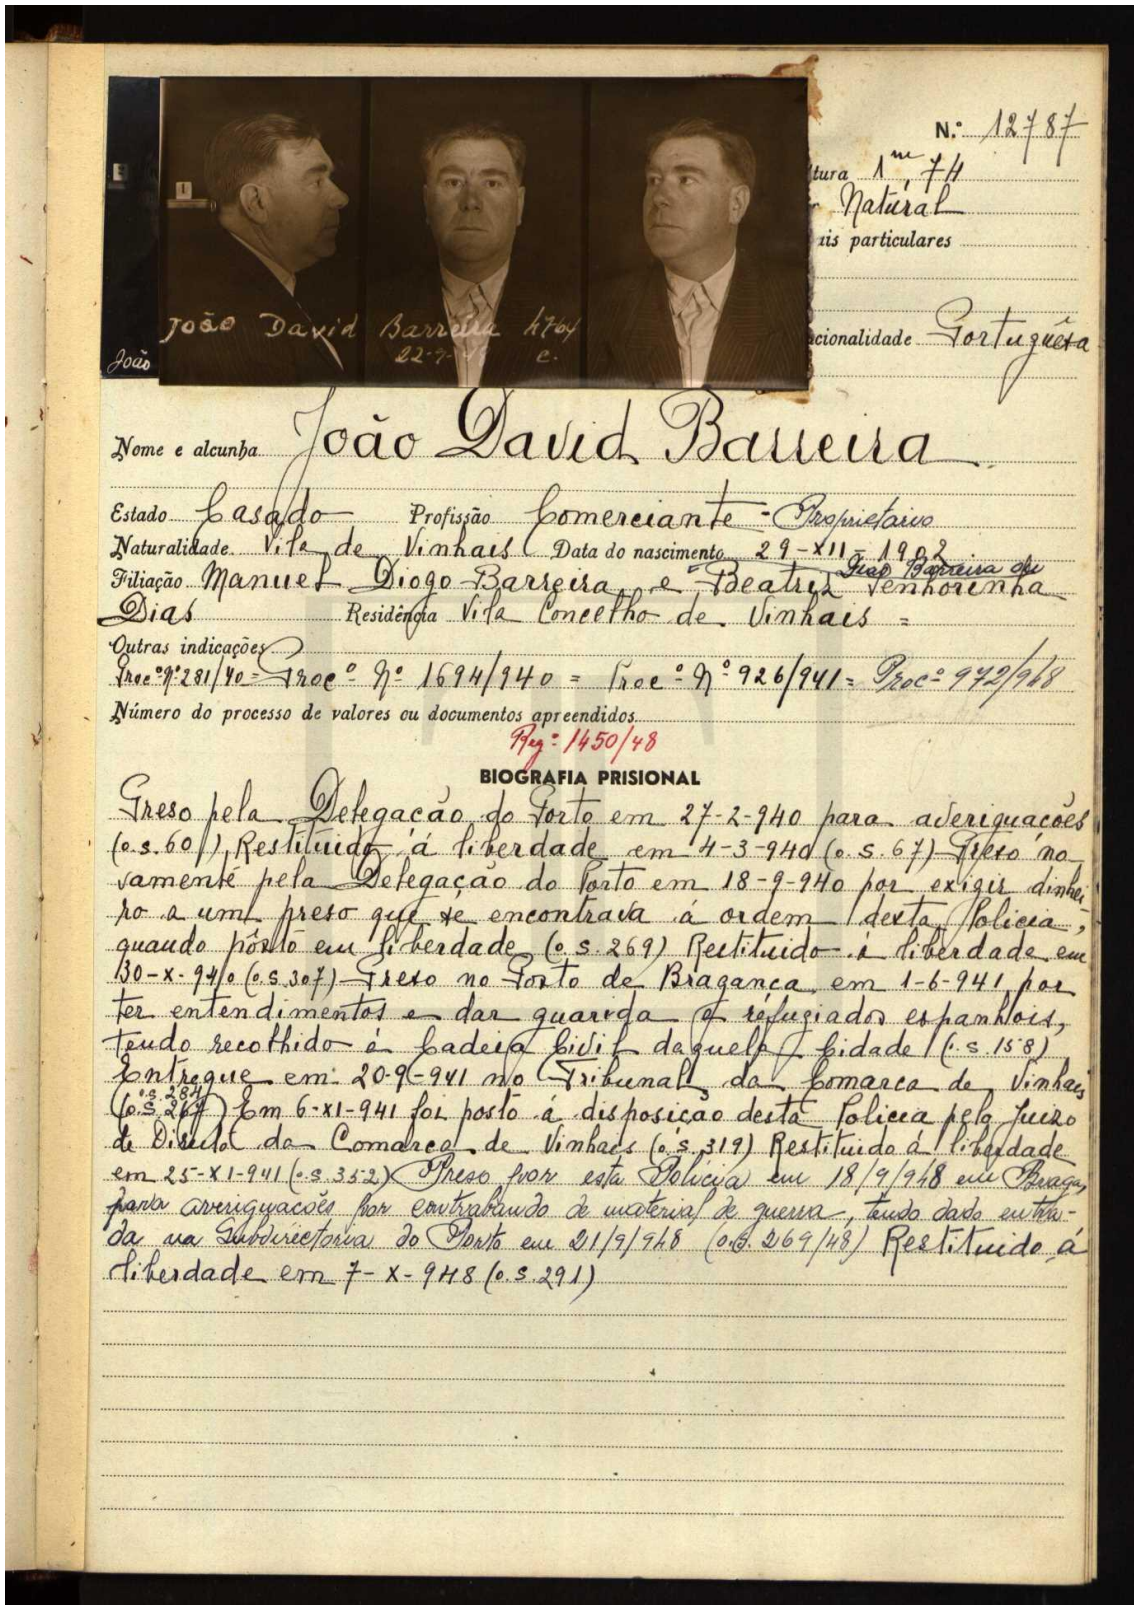 N.º 12787
tura 1m,74
Natural
ais particulares
cionalidade Portuguêsa
João David Barreira 4764
22-9- c.
João
Nome e alcunha João David Barreira
Estado Casado Profissão Comerciante - Proprietário
Naturalidade Vila de Vinhais Data do nascimento 29-XII-1902
Filiação Manuel Diogo Barreira e Beatriz Senhorinha
Dias Residência Vila Concelho de Vinhais =
Outras indicações
Procº nº 281/40 = Procº Nº 1694/940 = Procº Nº 926/941 = Procº 972/948
Número do processo de valores ou documentos apreendidos
Regº 1450/48
BIOGRAFIA PRISIONAL
Preso pela Delegação do Porto em 27-2-940 para averiguações
(o.s.60), Restituido á liberdade em 4-3-940 (o.s.67) Preso no
vamente pela Delegação do Porto em 18-9-940 por exigir dinhei-
ro a um preso que se encontrava á ordem desta Policia,
quando pôsto em liberdade (o.s.269) Restituido á liberdade em
30-X-940 (o.s.307) Preso no Posto de Bragança em 1-6-941 por
ter entendimentos e dar guarida a refugiados espanhois,
tendo recolhido á Cadeia Civil daquela Cidade (o.s.158)
Entregue em 20-9-941 no Tribunal da Comarca de Vinhais
(o.s.267) Em 6-XI-941 foi posto á disposição desta Policia pelo Juizo
de Direito da Comarca de Vinhaes (o.s.319) Restituido á liberdade
em 25-XI-941 (o.s.352) Preso por esta Policia em 18/9/948 em Braga,
para averiguacões por contrabando de material de guerra, tendo dado entra-
da na Subdirectoria do Porto em 21/9/948 (o.s.269/48) Restituido á
liberdade em 7-X-948 (o.s.291)